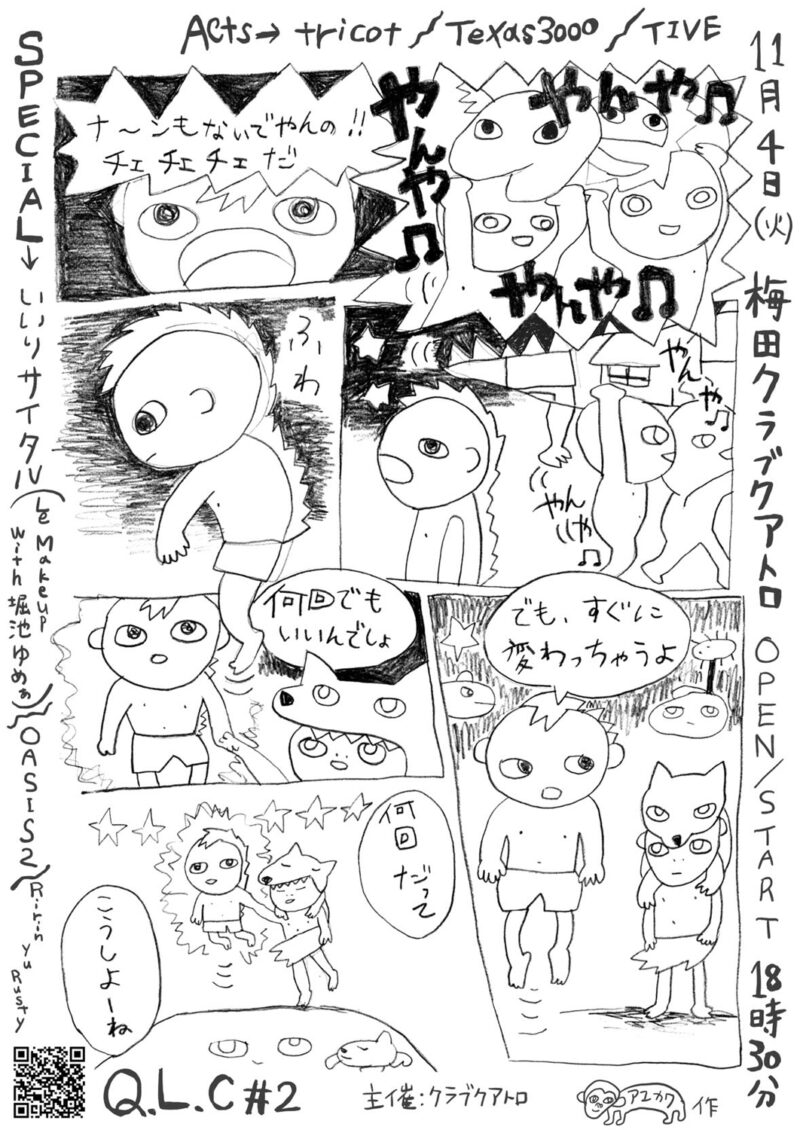 Acts→ tricot/Texas3000/TIVE
11月4日(火) 梅田クラブクアトロ OPEN/START 18時30分
SPECIAL→ いいリサイタル(Le Makeup with 堀池ゆめぁ)/OASIS2/Ririn Yu Rusty
やんや♫
やんや♫
やんや♫
ナ〜ンもないでやんの!!
チェ チェ チェ だ
やんや♫
やんや♫
ふわ
何回でも
いいんでしょ
でも、すぐに
変わっちゃうよ
何回だって
こうしよーね
Q.L.C#2
主催:クラブクアトロ
アユカワ 作